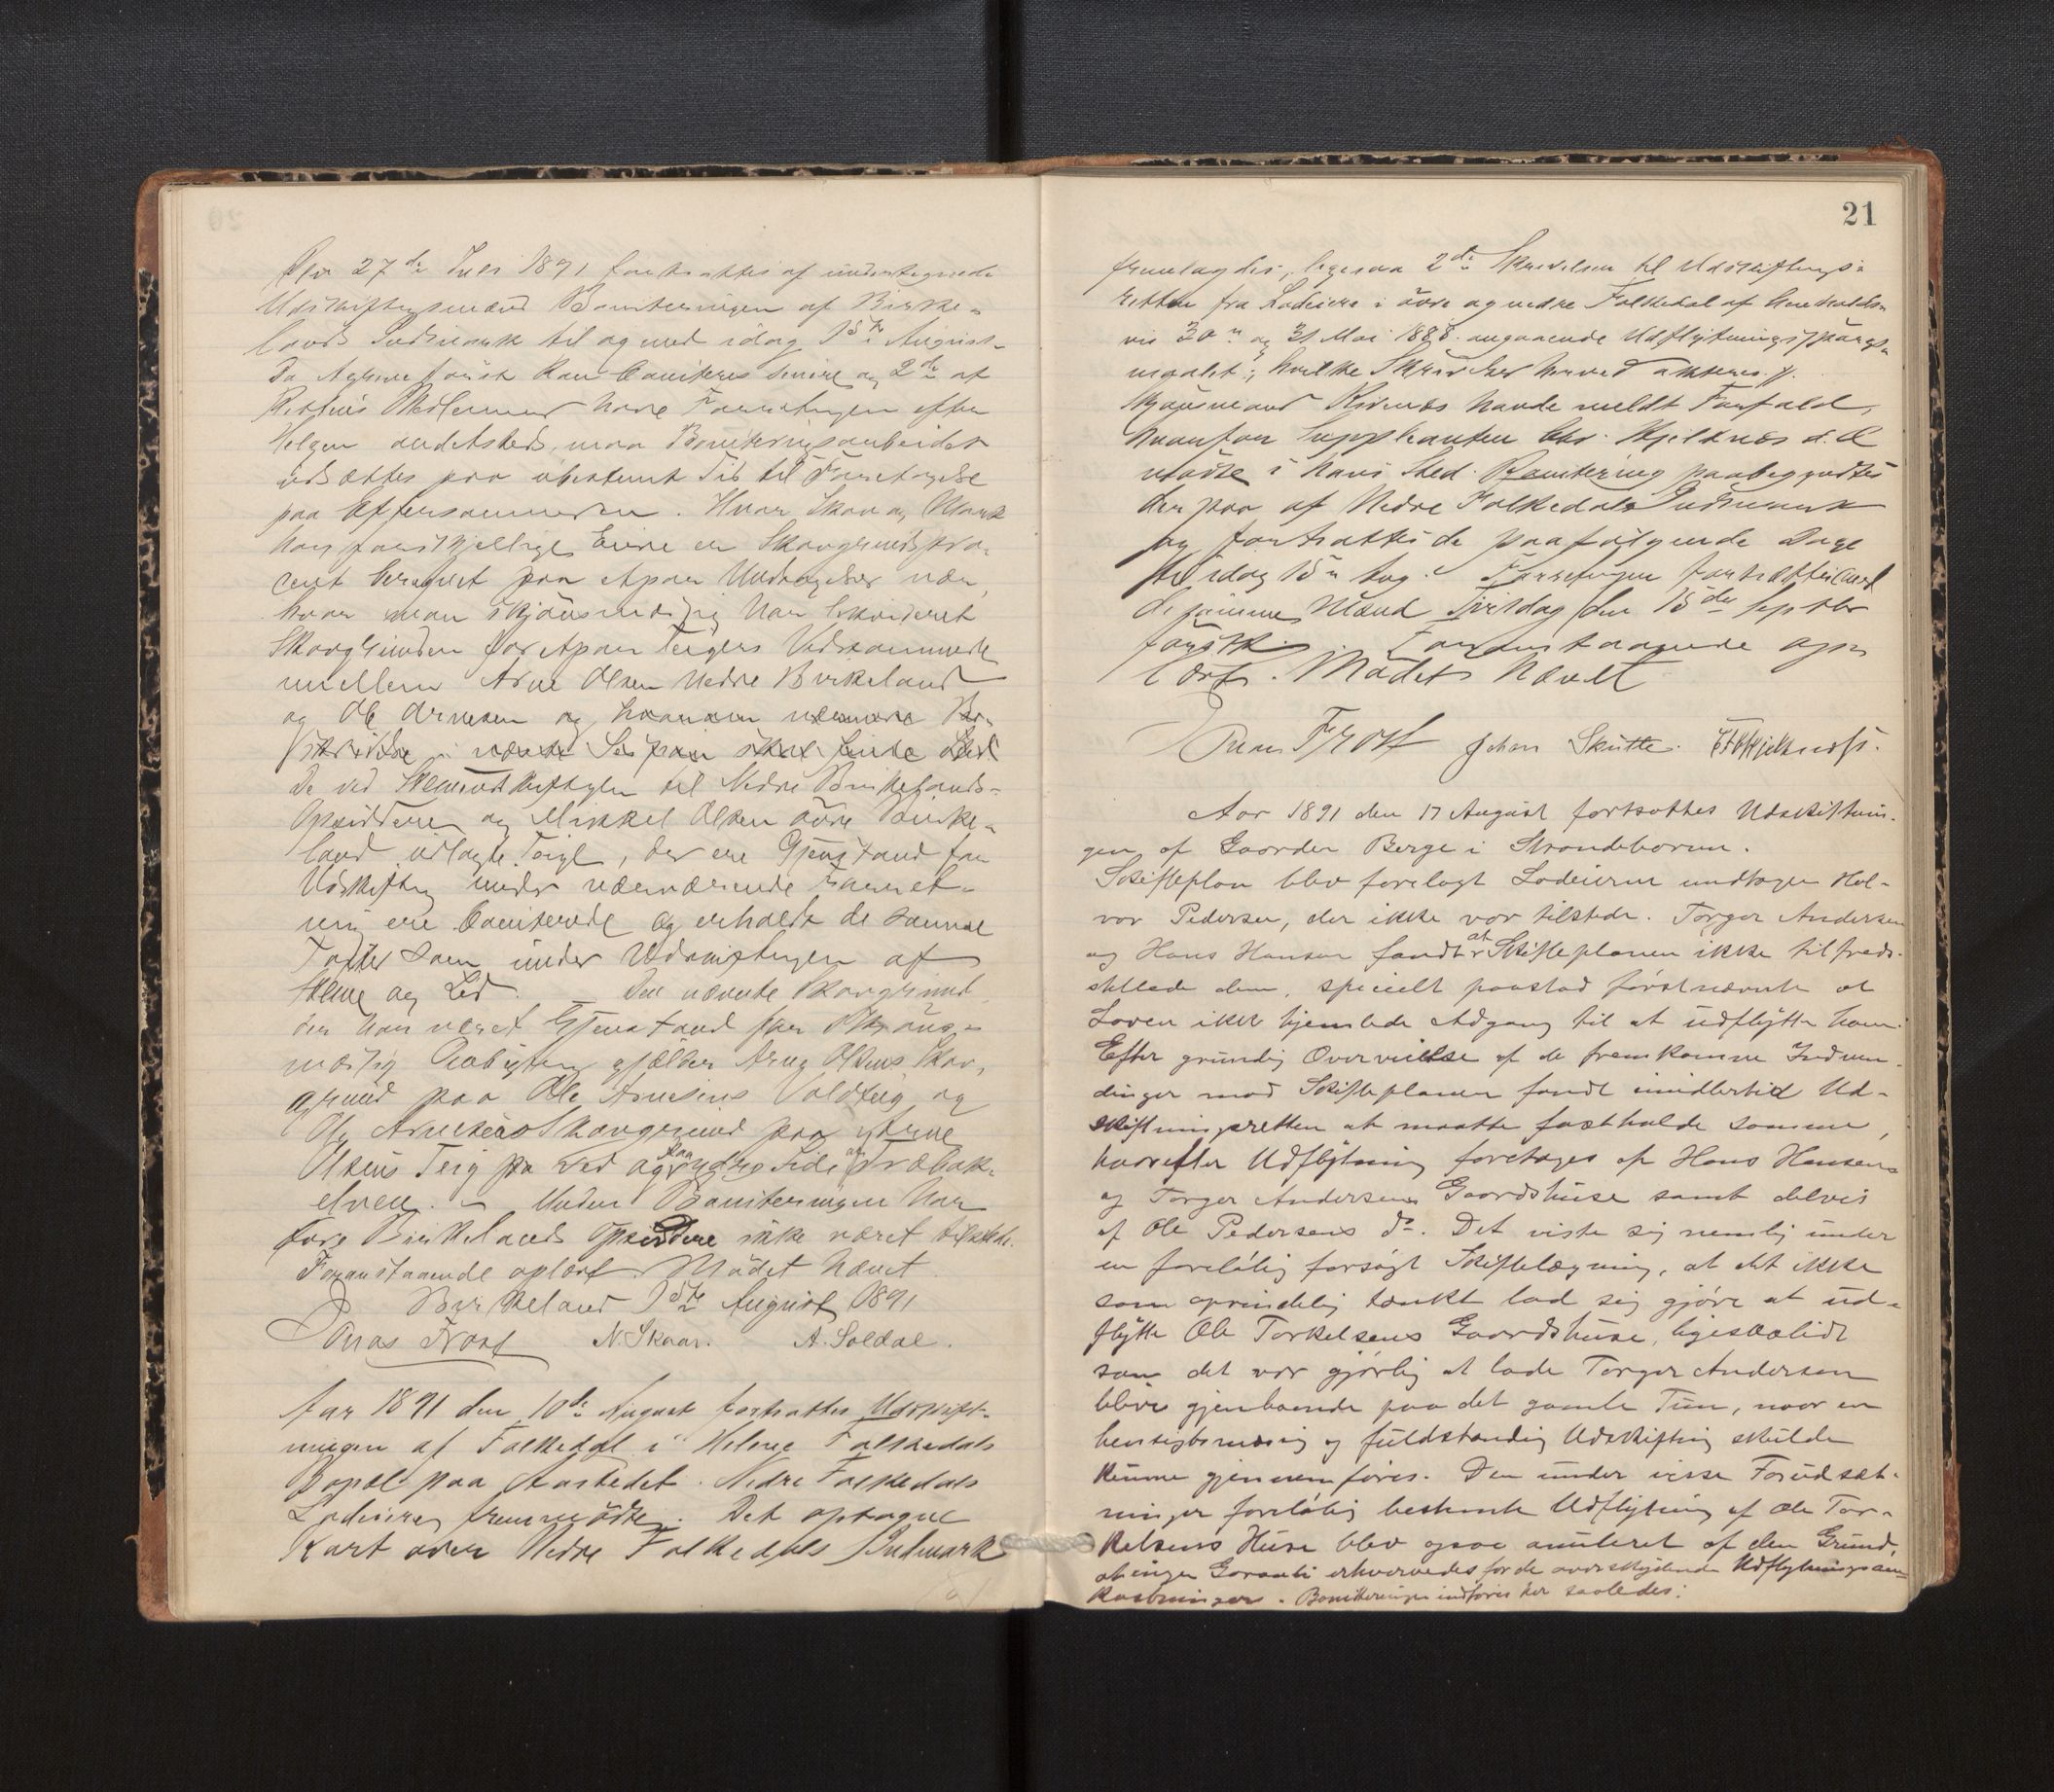 Den 27de Juli 1891 fortsattes af undertegnede
Udskiftningsmænd Boniteringen af Birke-
lands Indmark til og med idag 1ste August.
Da Agrene først kan boniteres senere og 2de af
Rettens Medlemmer have Forretninger efter
Helgen andetsteds, maa Boniteringsarbeidet
udsættes paa ubestemt Tid til Foretagelse
paa Eftersommeren. Hvor Skov og Mark
har forskjellige Eiere er Skovgrunds pro-
cent beregnet paa et par Undtagelser nær,
hvor man skjønsmæssig har
Skovgrunden for et par Teigers Vedkommende
mellem Arne Olsen Nedre Birkeland
og Ole Arnesen og hvorom nærmere Be-
skrivelse
De ved til Nedre Birkelands
Opsiddere og Mikkel Olsen øvre Birke-
land udlagte Teige, der ere Gjenstand for
Udskiftning under nærværende Forret-
ning ere boniterede og erholdt de samme
Taxter som under Udskiftningen af
og Lid. Den nævnte Skovgrund
der har været Gjenstand for Skjøns-
mæssig gjælder Arne Olsens Skov-
grund paa Ole Arnesens Voldteig og
Ole Arnesens Skovgrund paa Arne
Olsens Teig paa Ved og paa ydre Side af Træbak-
elven. — Under Boniteringen har
Øvre Birkelands Opsiddere ikke været tilstede.
Foranstaaende oplæst. Mødet hævet
Birkeland 1ste August 1891
Jonas Frost N. Skaar. A. Soldal.
Aar 1891 den 10de August fortsattes Udskift-
ningen af Folkedal i Helene Folkedals
Bopæl paa Aastedet. Nedre Folkedals
Lodeiere fremmødte. Det optagne
Kart over Nedre Folkedals Indmark
21
fremlagdes, ligesaa 2de Skrivelser til Udskiftnings-
retten fra Lodeiere i øvre og nedre Folkedal af henholds-
vis 30te og 31 Mai 1888 angaaende Udflytningsspørgs-
maalet, hvilke Skrivelser herved
Skjønsmand havde meldt Forfald,
hvorfor Suppleanten Hjeltnæs d. Æ
mødte i hans Sted. Bonitering paabegyndtes
derpaa af Nedre Folkedals Indmark
og fortsattes de paafølgende Dage
til idag 15de Aug. Forretningen fortsættes med
de samme Mænd Tirsdag den 15de Septbr
førstk. Foranstaaende op-
læst. Mødet hævet
Jonas Frost Johan Skutle. Hjeltnæs.
Aar 1891 den 17 August fortsattes Udskiftnin-
gen af Gaarden Berge i Strandebarm.
Skifteplan blev forelagt Lodeierne undtagen Hal-
vor Pedersen, der ikke var tilstede. Torger Andersen
og Hans Hansen fandt at Skifteplanen ikke tilfreds-
stillede dem, specielt paastod førstnævnte at
Loven ikke hjemlede Adgang til at udflytte ham.
Efter grundig Overveielse af de fremkomne Indven-
dinger mod Skifteplanen fandt imidlertid Ud-
skiftningsretten at maatte fastholde samme,
hvorefter Udflytning foretages af Hans Hansens
og Torger Andersens Gaardshuse samt delvis
af Ole Pedersens do. Det viste sig nemlig under
en foreløbig forsøgt Skiftelægning, at det ikke
som oprindelig tænkt lod sig gjøre at ud-
flytte Ole Torkelsens Gaardshuse, ligesaalidt
som det var gjørlig at lade Torger Andersen
blive gjenboende paa det gamle Tun, naar en
hensigtsmæssig og fuldstændig Udskiftning skulde
kunne gjennemføres. Den under visse Forudsæt-
ninger foreløbig bestemte Udflytning af Ole Tor-
kelsens Huse blev ogsaa anulleret af den Grund,
at ingen Garanti erhvervedes for de overskydende Udflytningsom-
kostninger. Boniteringen indføres her saaledes: